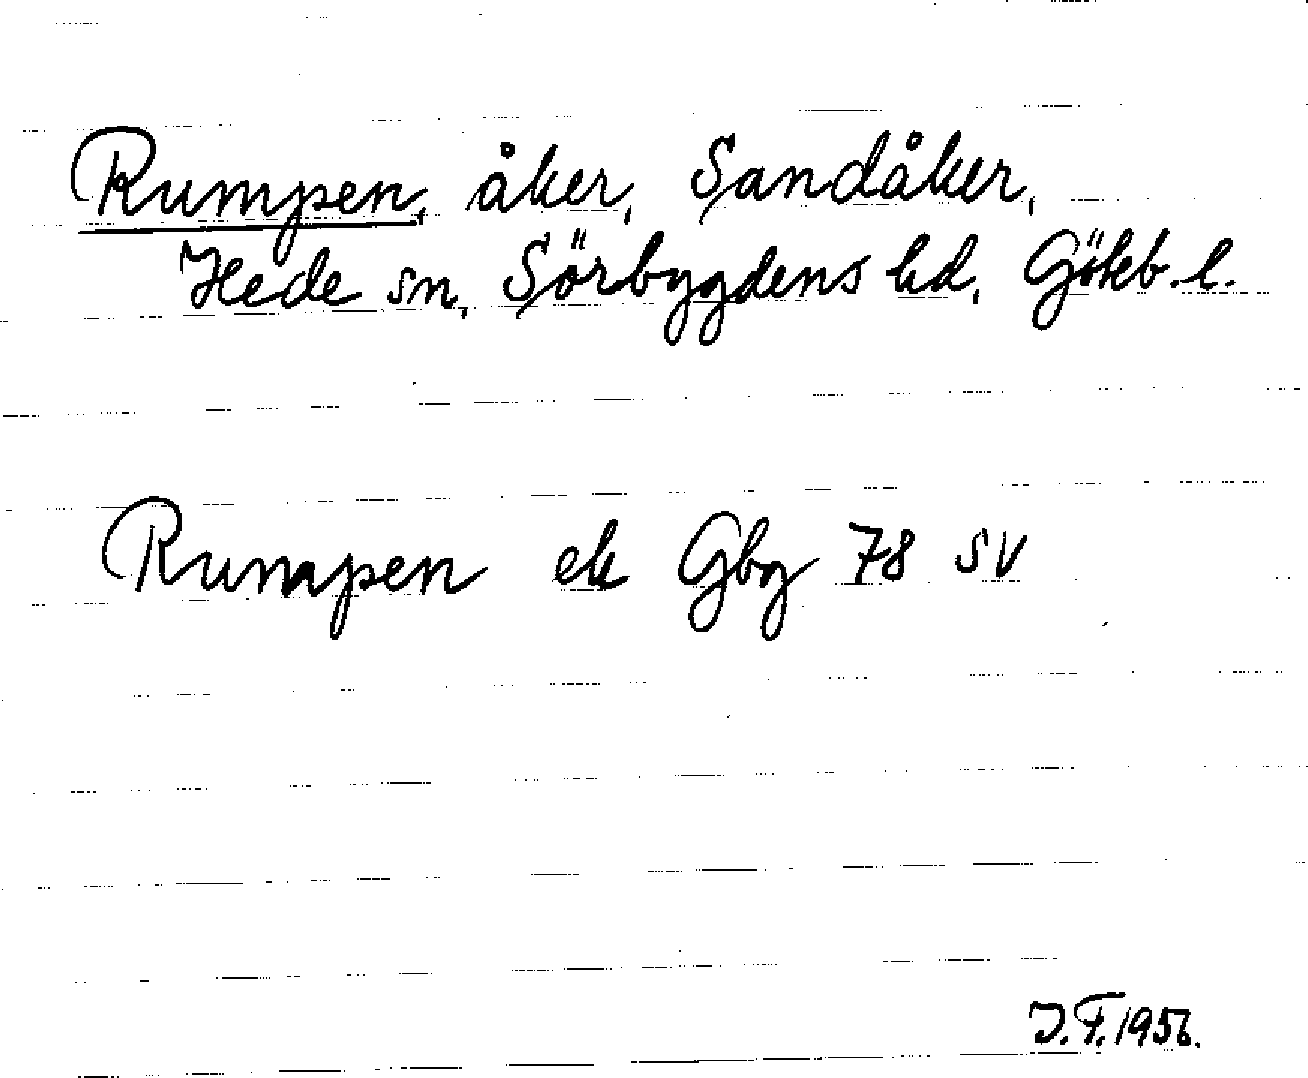 Rumpen, åker, Sandåker,
Hede sn, Sörbygdens hd, Göteb. l.
Rumpen ek Gbg 78 SV
J.F. 1956.